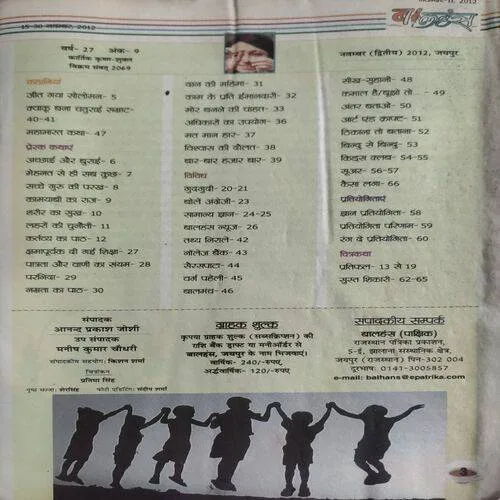 15-30 नवम्बर, 2012
बालहंस
वर्ष- 27 अंक- 9
कार्तिक कृष्ण-शुक्ल
विक्रम संवत् 2069
नवम्बर (द्वितीय) 2012, जयपुर
कहानियां
जीत गया सोलोमन- 5
क्याकू बना चतुराई सम्राट-
40-41
महाभारत कथा- 47
प्रेरक कथाएं
अच्छाई और बुराई- 6
मेहनत से ही सब कुछ- 7
सच्चे गुरु की परख- 8
कामयाबी का राज- 9
शरीर का सुख- 10
लहरों की चुनौती- 11
कर्तव्य का पाठ- 12
क्षमापूर्वक दी गई शिक्षा- 27
पात्रता और वाणी का संयम- 28
परनिंदा- 29
नम्रता का पाठ- 30
दान की महिमा- 31
काम के प्रति ईमानदारी- 32
मोर बनने की चाहत- 33
अधिकारों का उपयोग- 36
मत मान हार- 37
विश्वास की दौलत- 38
बार-बार हजार बार- 39
विविध
गुदगुदी- 20-21
बोलें अंग्रेजी- 23
सामान्य ज्ञान- 24-25
बालहंस न्यूज- 26
तथ्य निराले- 42
नॉलेज बैंक- 43
सैरसपाटा- 44
वर्ग पहेली- 45
बालमंच- 46
सीख-सुहानी- 48
कमाल है/बूझो तो... - 49
अंतर बताओ- 50
आर्ट एंड क्राफ्ट- 51
ठिकाना तो बताना- 52
बिन्दु से बिन्दु- 53
किड्स क्लब- 54-55
सूअर- 56-57
कैसा लगा- 66
प्रतियोगिताएं
ज्ञान प्रतियोगिता- 58
प्रतियोगिता परिणाम- 59
रंग दे प्रतियोगिता- 60
चित्रकथा
प्रतिफल- 13 से 19
सुस्त शिकारी- 62-65
संपादक
आनन्द प्रकाश जोशी
उप संपादक
मनीष कुमार चौधरी
संपादकीय सहयोग: किशन शर्मा
चित्रांकन
प्रतिमा सिंह
पृष्ठ सज्जा: शेरसिंह फोटो एडिटिंग: संदीप शर्मा
ग्राहक शुल्क
कृपया ग्राहक शुल्क (सब्सक्रिप्शन) की
राशि बैंक ड्राफ्ट या मनीऑर्डर से
बालहंस, जयपुर के नाम भिजवाएं।
वार्षिक- 240/-रुपए,
अर्द्धवार्षिक- 120/-रुपए
संपादकीय सम्पर्क
बालहंस (पाक्षिक)
राजस्थान पत्रिका प्रकाशन,
5-ई, झालाना संस्थानिक क्षेत्र,
जयपुर (राजस्थान) पिन-302 004
दूरभाष: 0141-3005857
e-mail: balhans@epatrika.com
3